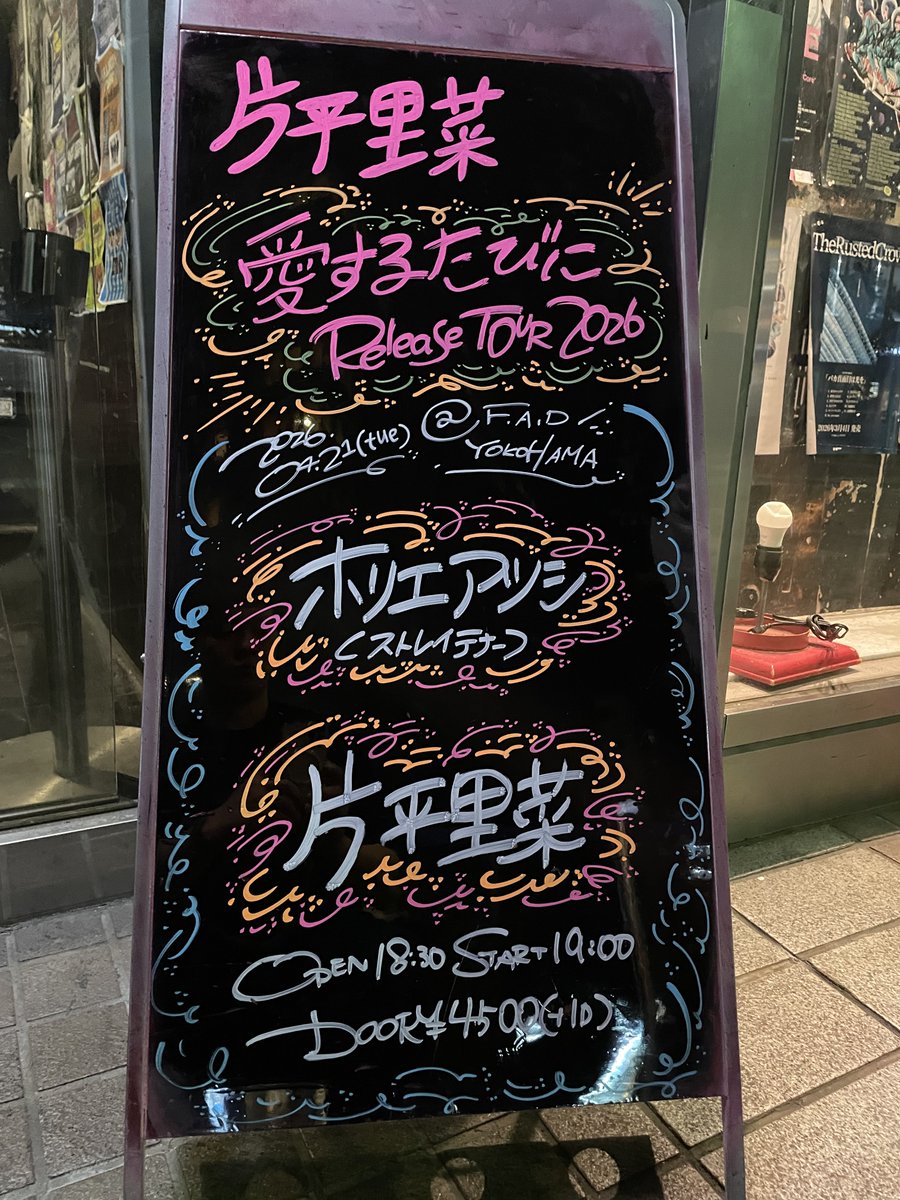 片平里菜
愛するたびに
Release TOUR 2026
2026
04.21(tue)
@ F.A.D
YOKOHAMA
ホリエアツシ
(ストレイテナー)
片平里菜
OPEN 18:30 START 19:00
DOOR ¥4500(+1D)
TheRustedCrow
2026年3月4日 発売